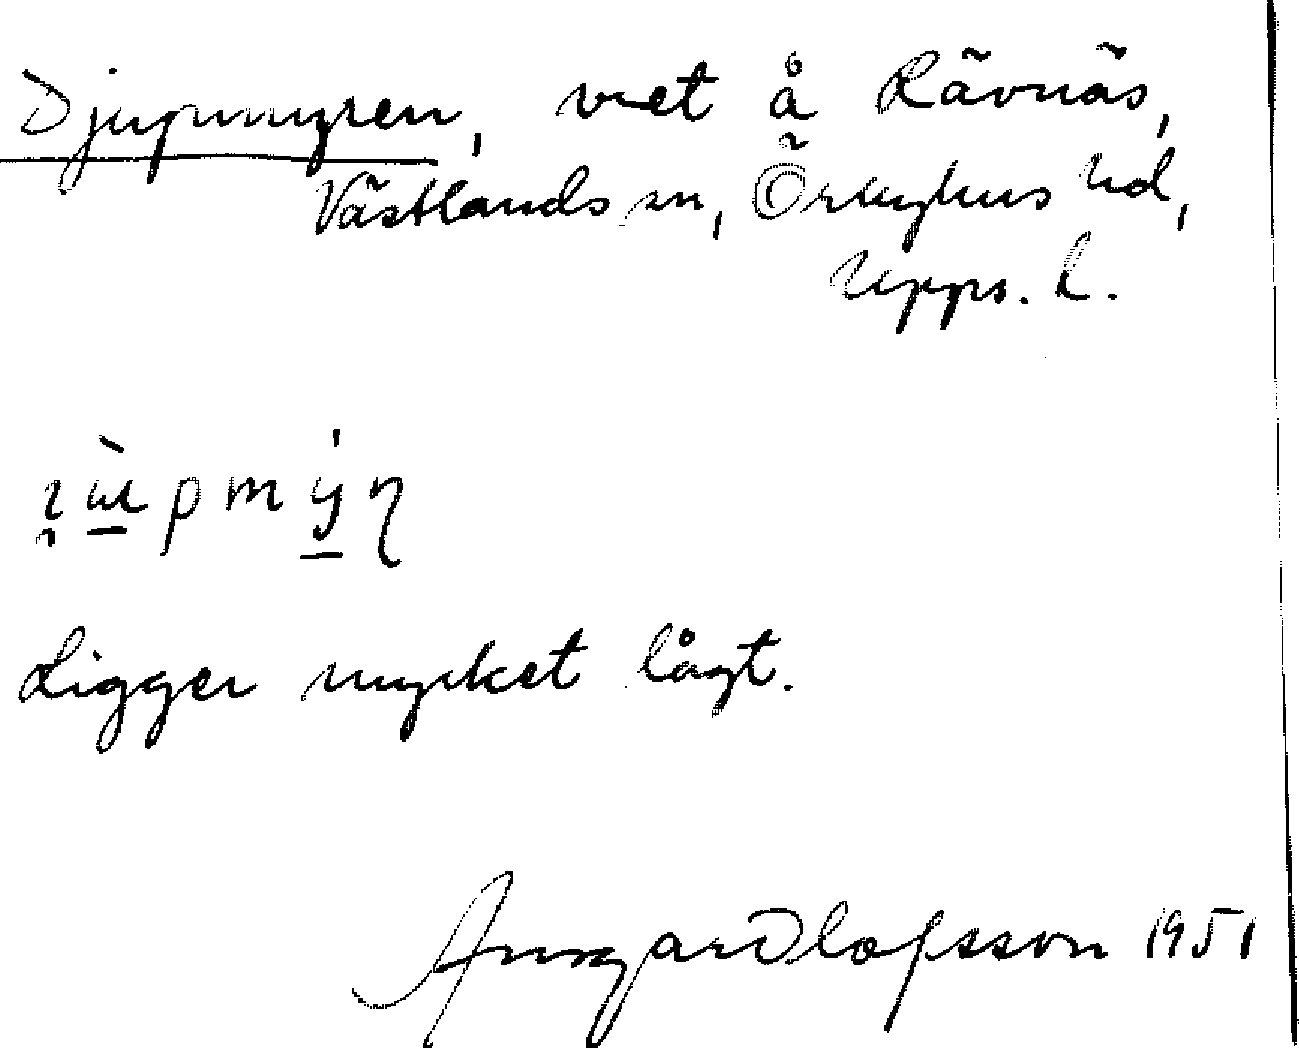 Djupmyren, vret å Rävnäs,
Västlands sn, Örbyhus hd,
Upps. l.
Ligger mycket lågt.
Olofsson 1951